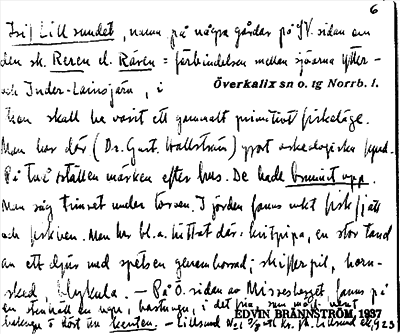 6
Lillsundet, namn på några gårdar på V. sidan om
den sk. Reren l. Rären = förbindelsen mellan sjöarna Ytter-
och Inder-Lainsjärn, i
Överkalix sn o. tg Norrb. l.
Han skall ha varit ett gammalt primitivt fiskeläge.
Man har där (Dr. Gust. Hallström) gjort arkeologiska fynd.
På två ställen märken efter hus. De hade brunnit upp.
Man såg timret under torven. I jorden fanns mkt fiskfjäll
och fiskben. Man har bl.a. hittat där: kritpipa, en stor tand
av ett djur med spetsen genomborrad, skifferpil, horn-
sked, blykula. — På Ö. sidan av fanns på
en i det
EDVIN BRÄNNSTRÖM, 1937
i — Lillsund